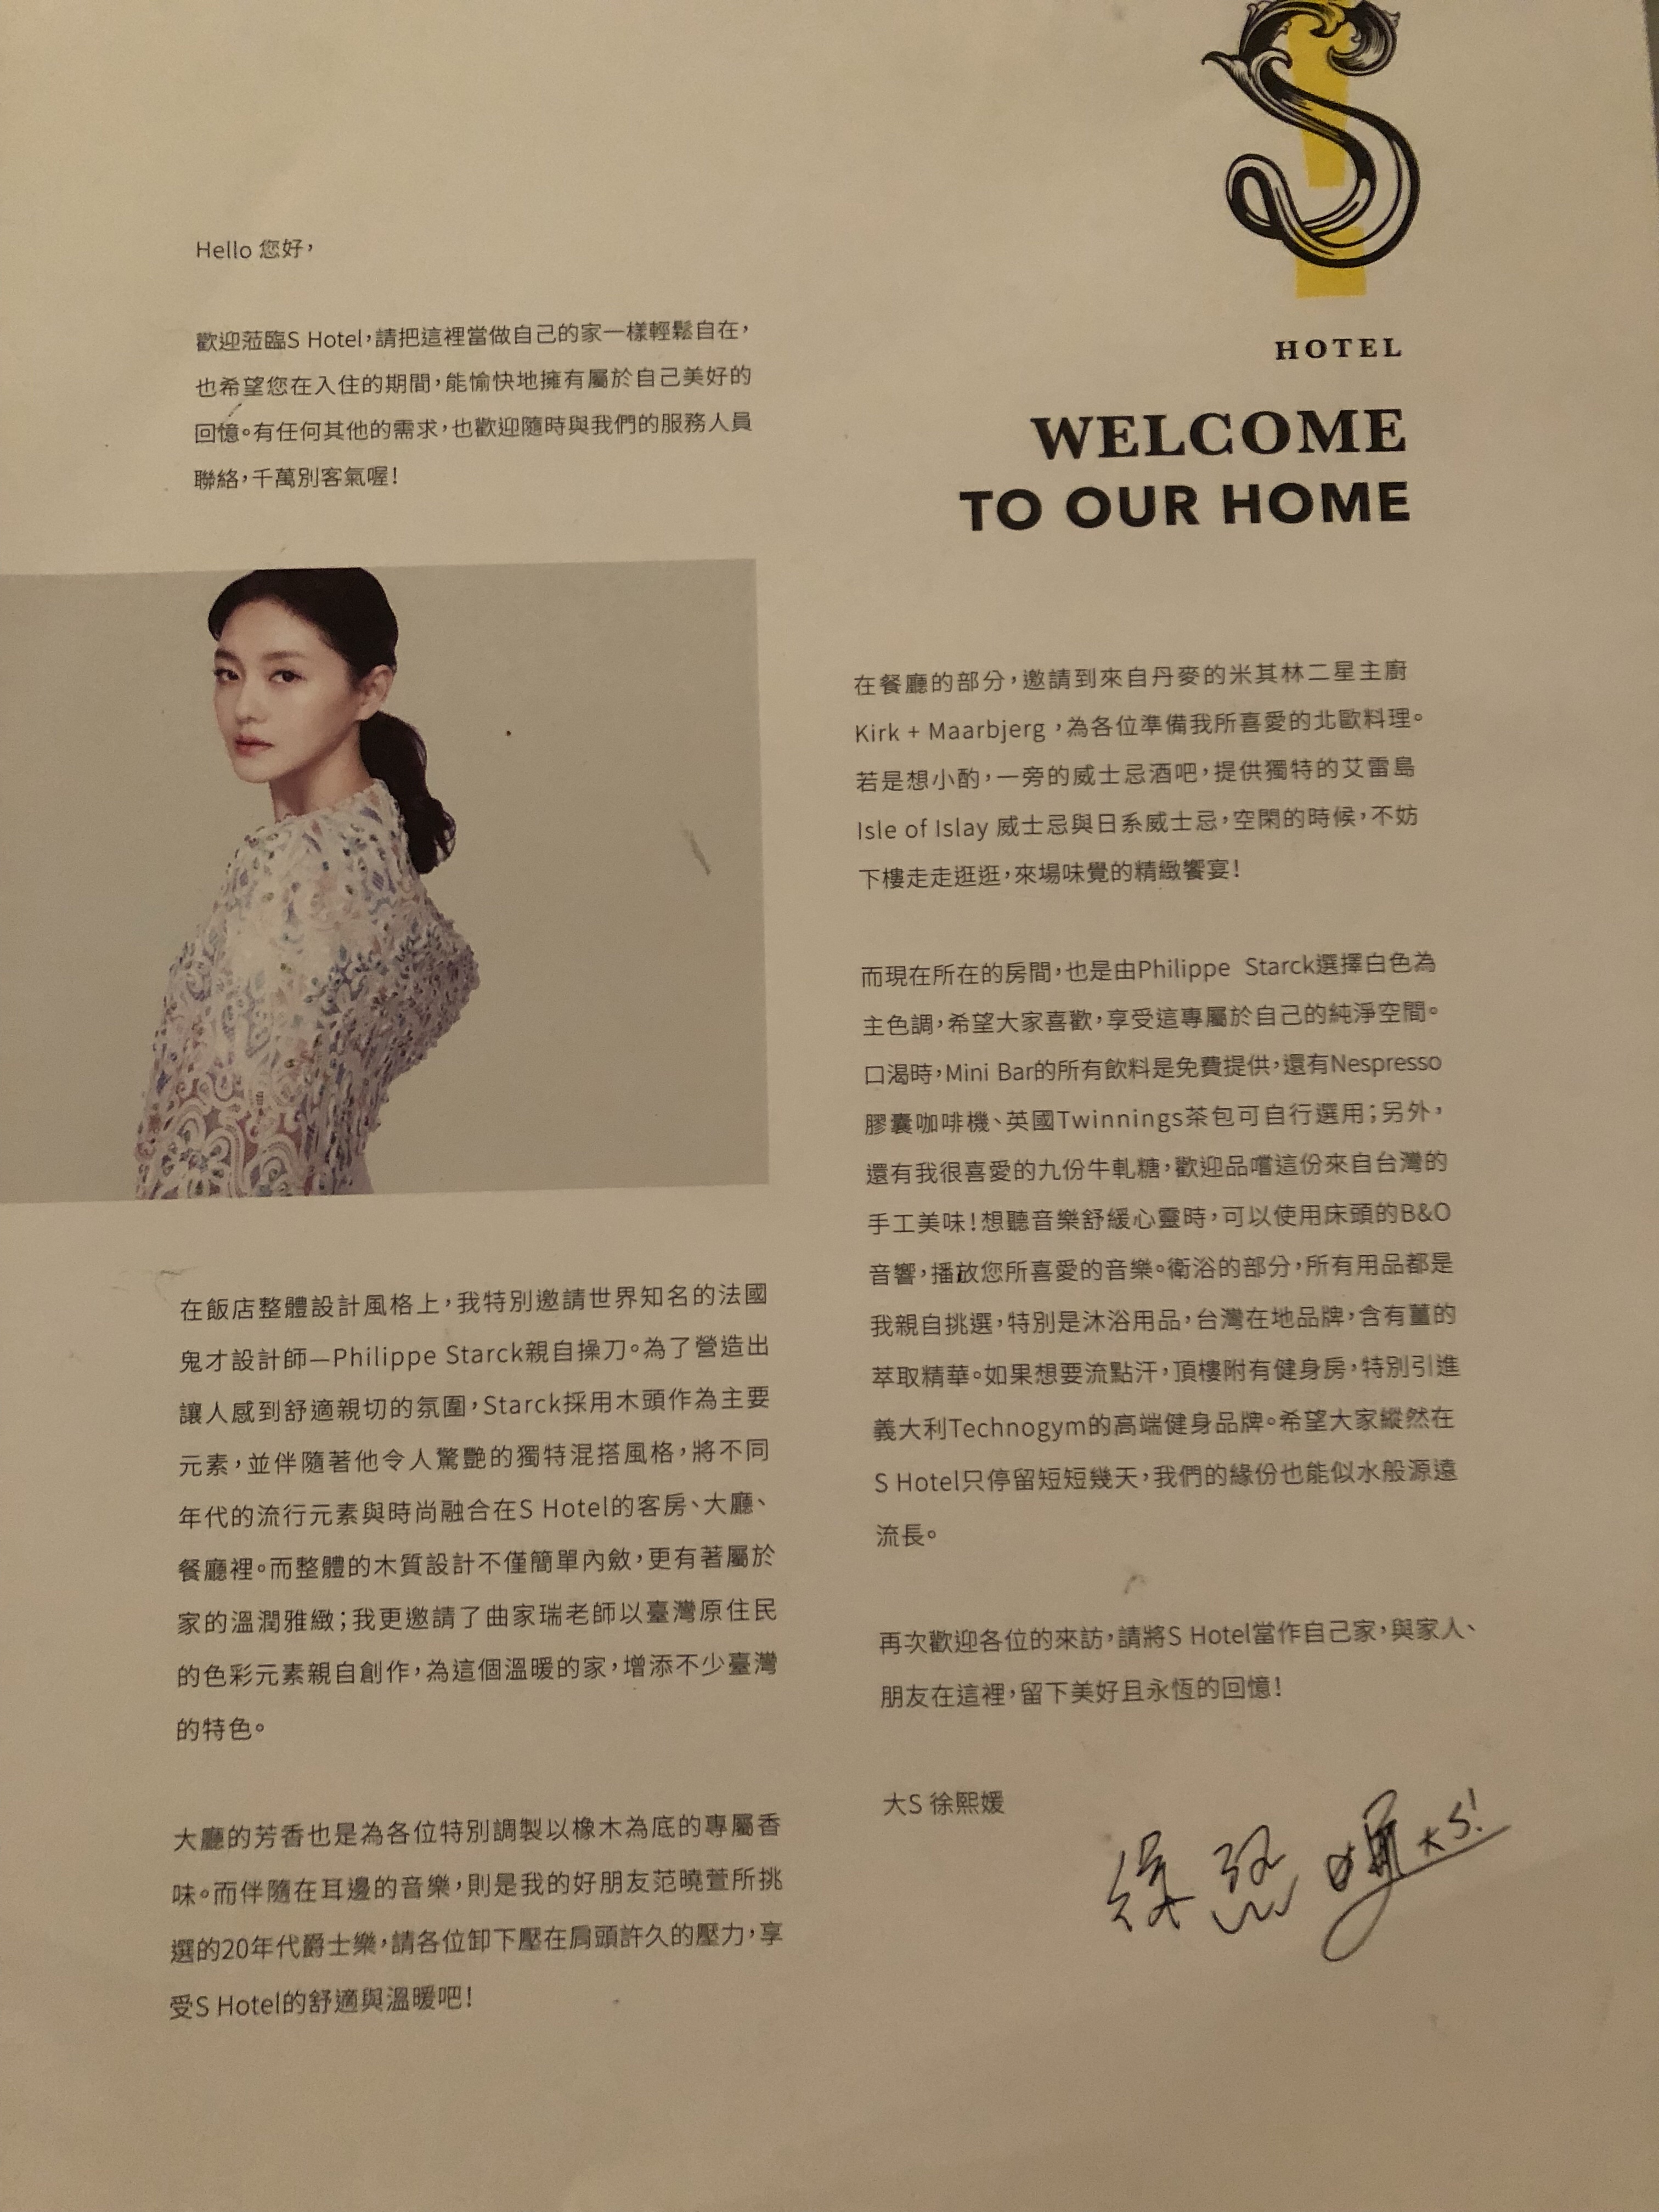 Hello 您好，
歡迎蒞臨S Hotel，請把這裡當做自己的家一樣輕鬆自在，
也希望您在入住的期間，能愉快地擁有屬於自己美好的
回憶。有任何其他的需求，也歡迎隨時與我們的服務人員
聯絡，千萬別客氣喔！
在飯店整體設計風格上，我特別邀請世界知名的法國
鬼才設計師—Philippe Starck親自操刀。為了營造出
讓人感到舒適親切的氛圍，Starck採用木頭作為主要
元素，並伴隨著他令人驚艷的獨特混搭風格，將不同
年代的流行元素與時尚融合在S Hotel的客房、大廳、
餐廳裡。而整體的木質設計不僅簡單內斂，更有著屬於
家的溫潤雅緻；我更邀請了曲家瑞老師以臺灣原住民
的色彩元素親自創作，為這個溫暖的家，增添不少臺灣
的特色。
大廳的芳香也是為各位特別調製以橡木為底的專屬香
味。而伴隨在耳邊的音樂，則是我的好朋友范曉萱所挑
選的20年代爵士樂，請各位卸下壓在肩頭許久的壓力，享
受S Hotel的舒適與溫暖吧！
S
HOTEL
WELCOME
TO OUR HOME
在餐廳的部分，邀請到來自丹麥的米其林二星主廚
Kirk + Maarbjerg ，為各位準備我所喜愛的北歐料理。
若是想小酌，一旁的威士忌酒吧，提供獨特的艾雷島
Isle of Islay 威士忌與日系威士忌，空閑的時候，不妨
下樓走走逛逛，來場味覺的精緻饗宴！
而現在所在的房間，也是由Philippe Starck選擇白色為
主色調，希望大家喜歡，享受這專屬於自己的純淨空間。
口渴時，Mini Bar的所有飲料是免費提供，還有Nespresso
膠囊咖啡機、英國Twinnings茶包可自行選用；另外，
還有我很喜愛的九份牛軋糖，歡迎品嚐這份來自台灣的
手工美味！想聽音樂舒緩心靈時，可以使用床頭的B&O
音響，播放您所喜愛的音樂。衛浴的部分，所有用品都是
我親自挑選，特別是沐浴用品，台灣在地品牌，含有薑的
萃取精華。如果想要流點汗，頂樓附有健身房，特別引進
義大利Technogym的高端健身品牌。希望大家縱然在
S Hotel只停留短短幾天，我們的緣份也能似水般源遠
流長。
再次歡迎各位的來訪，請將S Hotel當作自己家，與家人、
朋友在這裡，留下美好且永恆的回憶！
大S 徐熙媛
徐熙媛 大S！